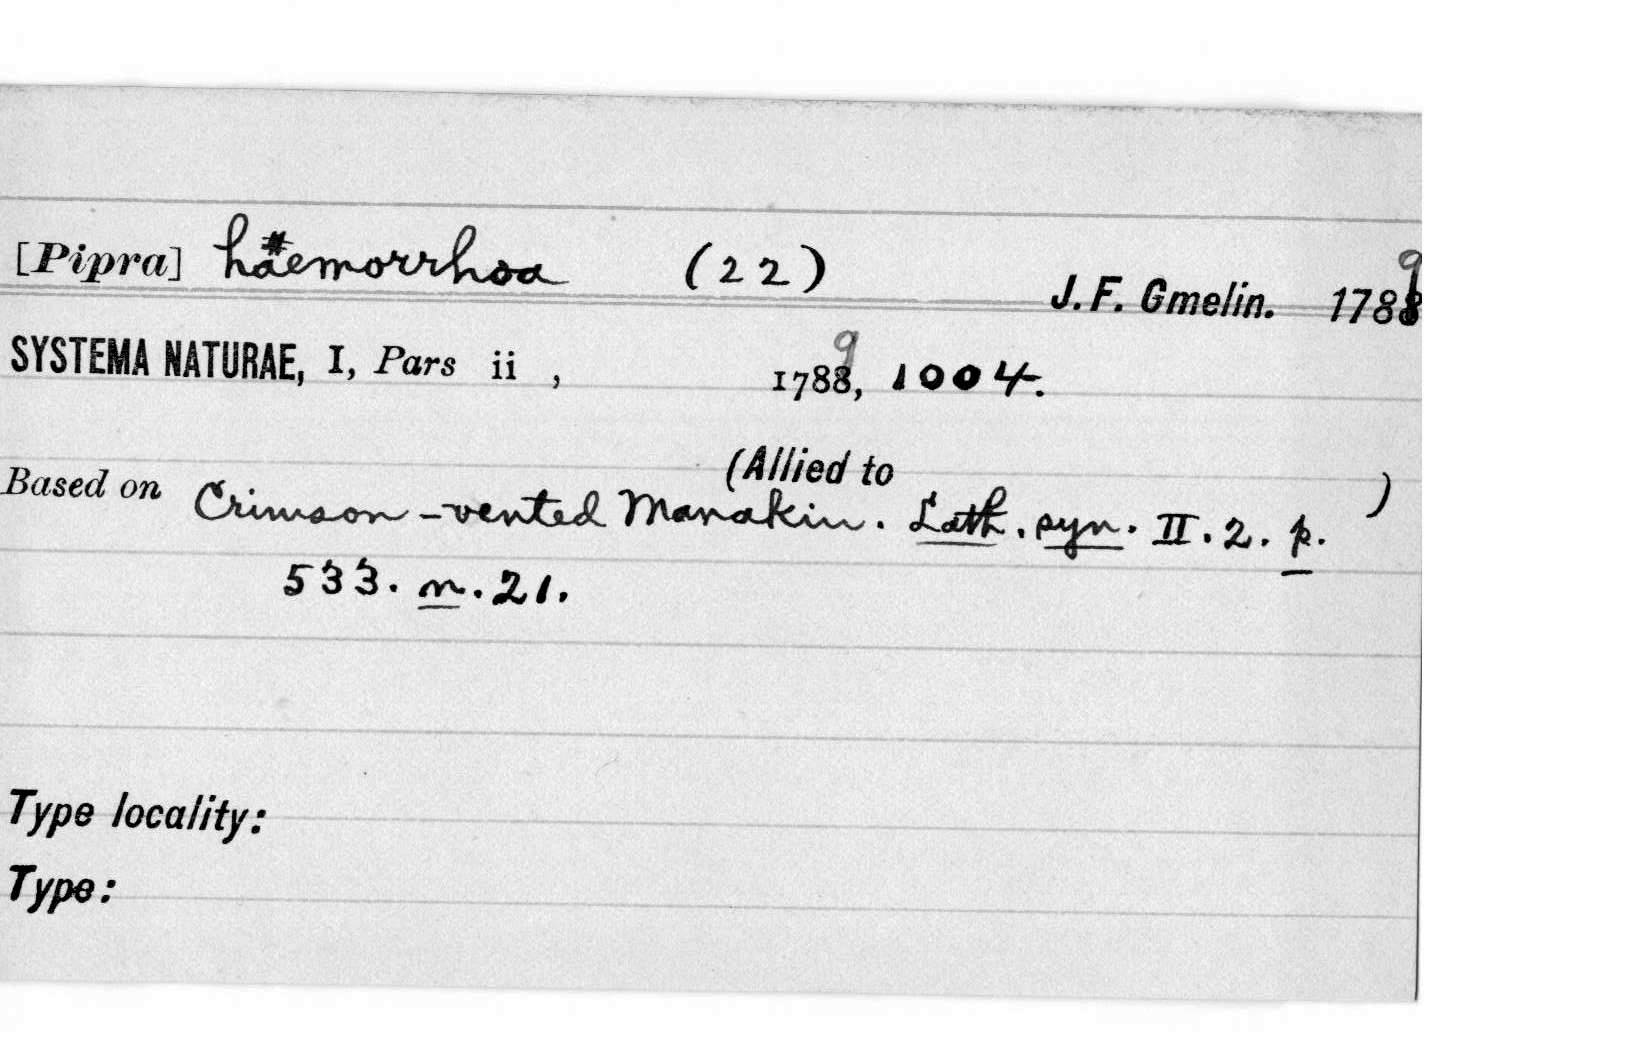 [Pipra] haemorrhoa (22) J. F. Gmelin. 1788 9
SYSTEMA NATURAE, I, Pars ii , 1788 9, 1004.
(Allied to )
Based on Crimson-vented Manakin. Lath. syn. II. 2. p.
533. n. 21.
Type locality:
Type: